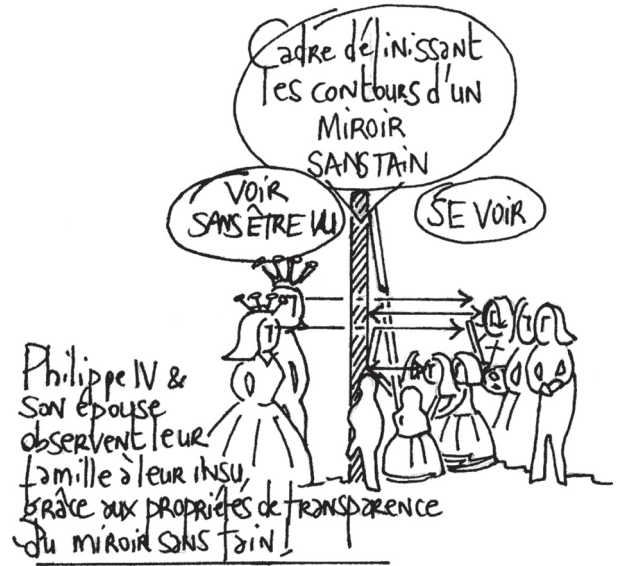 Cadre définissant
les contours d'un
MIROIR
SANS TAIN
VOIR
SANS ÊTRE VU
SE VOIR
Philippe IV &
son épouse
observent leur
famille à leur insu,
grâce aux propriétés de transparence
du miroir sans tain!